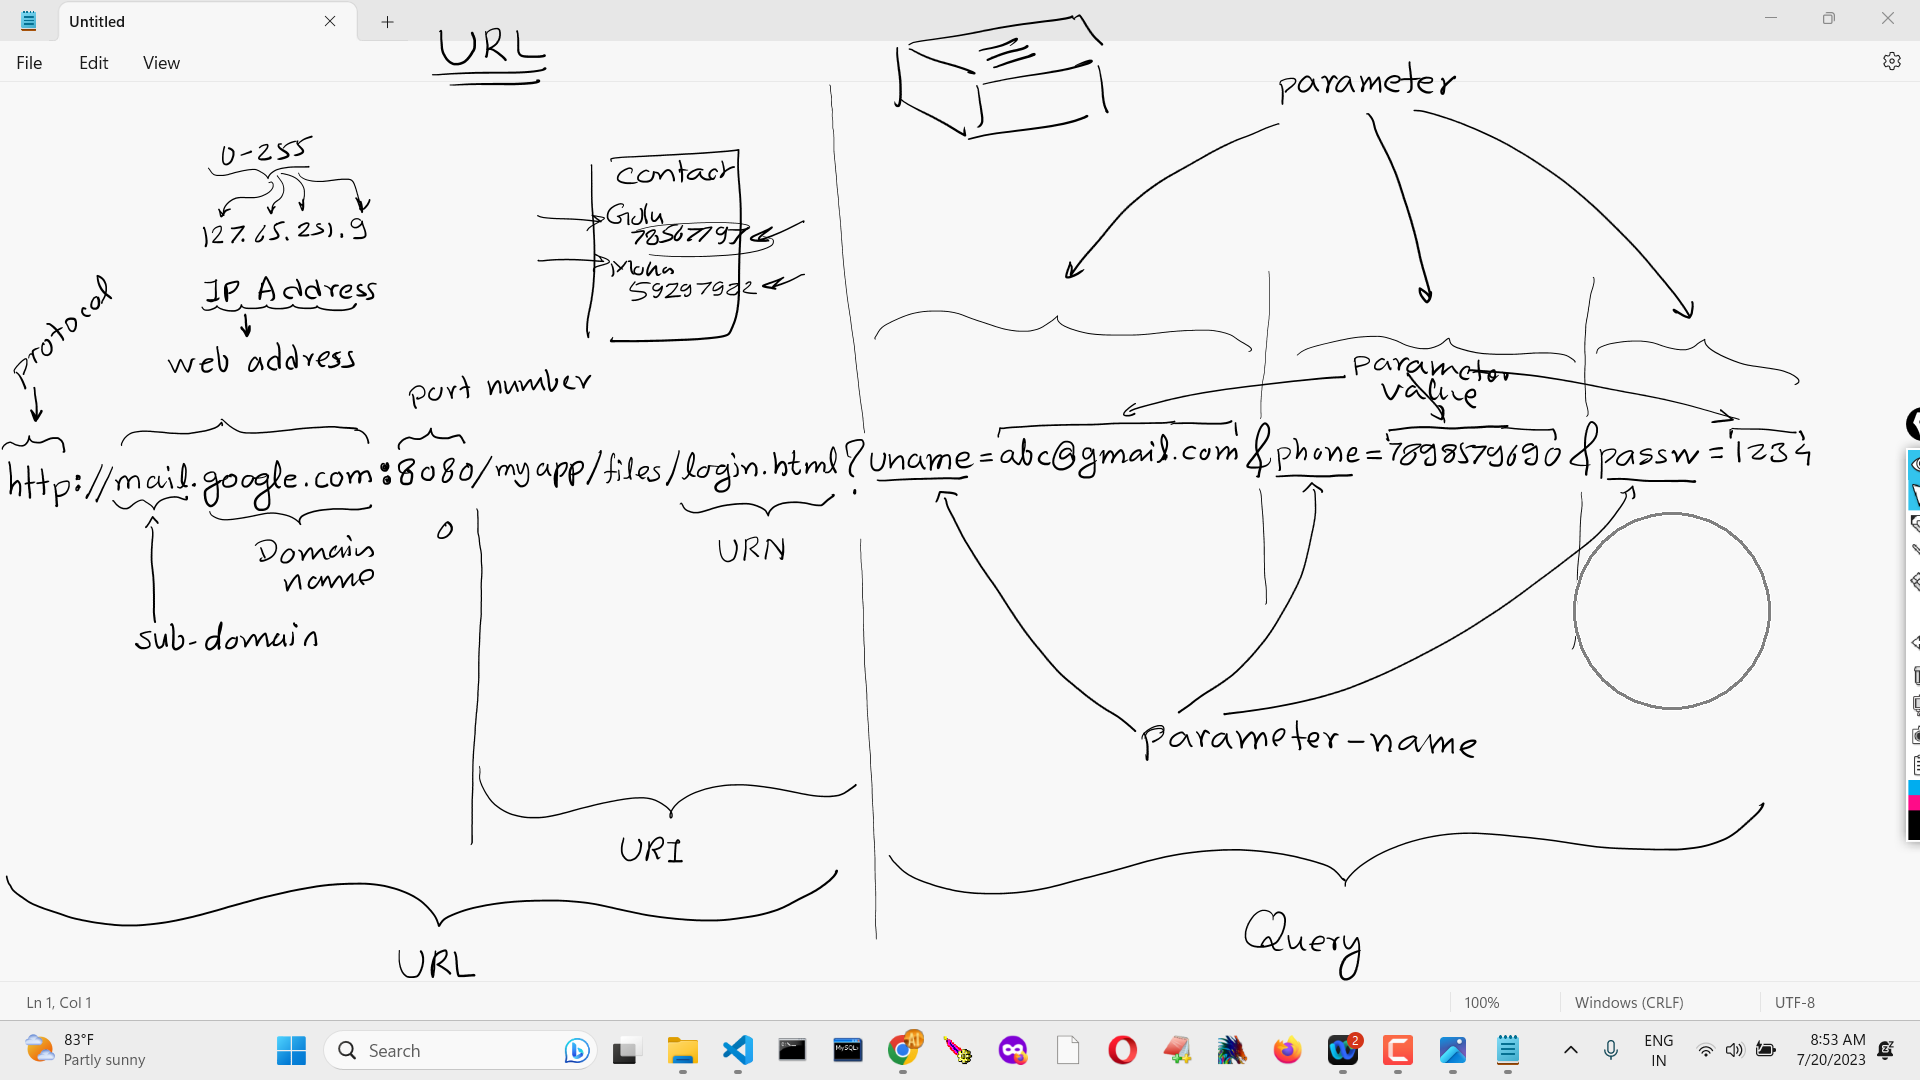 Untitled
File Edit View
URL
parameter
0-255
127.65.251.9
IP Address
web address
contact
Golu
78567797
59297922
protocal
port number
parameter
value
http://mail.google.com:8080/myapp/files/login.html?uname=abc@gmail.com&phone=7898579690&passw=1234
0
URN
Domain
name
sub-domain
parameter-name
URI
URL
Query
Ln 1, Col 1 100% Windows (CRLF) UTF-8
83°F
Partly sunny
Search
MySQL
AI
2
ENG
IN
8:53 AM
7/20/2023